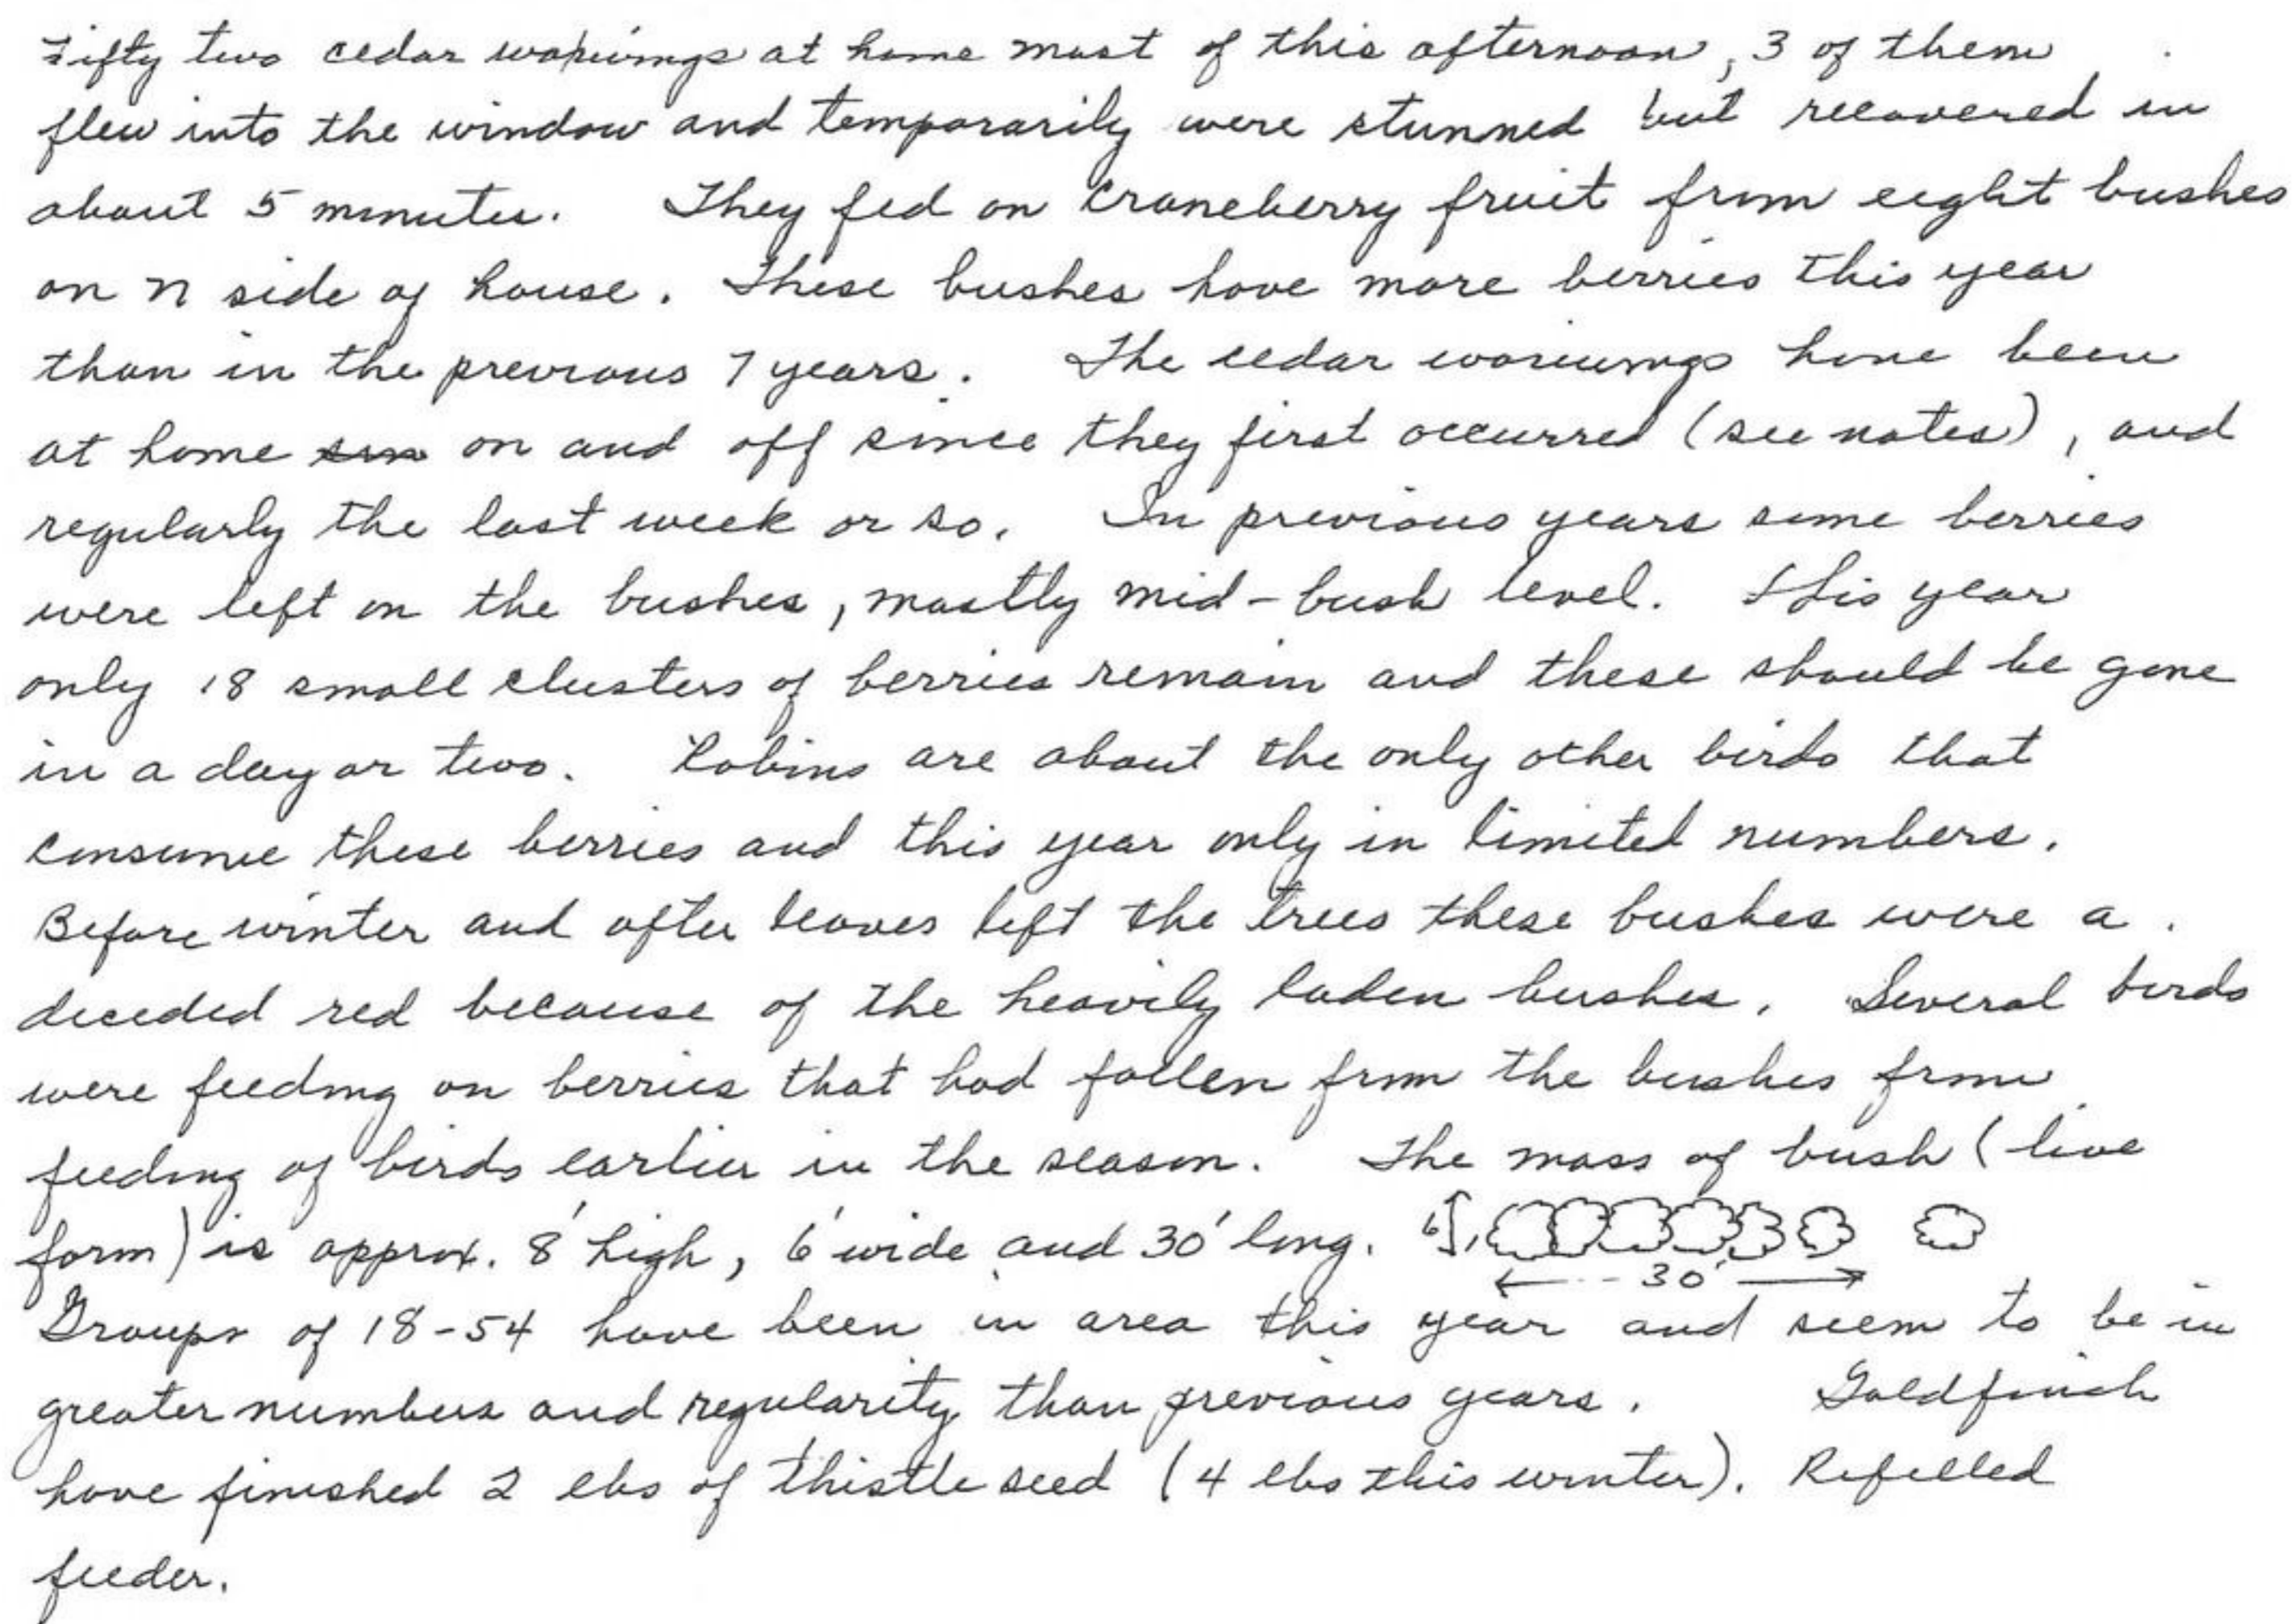 Fifty two cedar waxwings at home most of this afternoon, 3 of them
flew into the window and temporarily were stunned but recovered in
about 5 minutes. They fed on Craneberry fruit from eight bushes
on N side of house. These bushes have more berries this year
than in the previous 7 years. The cedar waxwings have been
at home sin on and off since they first occurred (see notes), and
regularly the last week or so. In previous years some berries
were left on the bushes, mostly mid-bush level. This year
only 18 small clusters of berries remain and these should be gone
in a day or two. Robins are about the only other birds that
consume these berries and this year only in limited numbers.
Before winter and after leaves left the trees these bushes were a
decided red because of the heavily laden bushes. Several birds
were feeding on berries that had fallen from the bushes from
feeding of birds earlier in the season. The mass of bush (live
form) is approx. 8' high, 6' wide and 30' long. 6'
30'
Groups of 18-54 have been in area this year and seem to be in
greater numbers and regularity than previous years. Goldfinch
have finished 2 lbs of thistle seed (4 lbs this winter). Refilled
feeder.